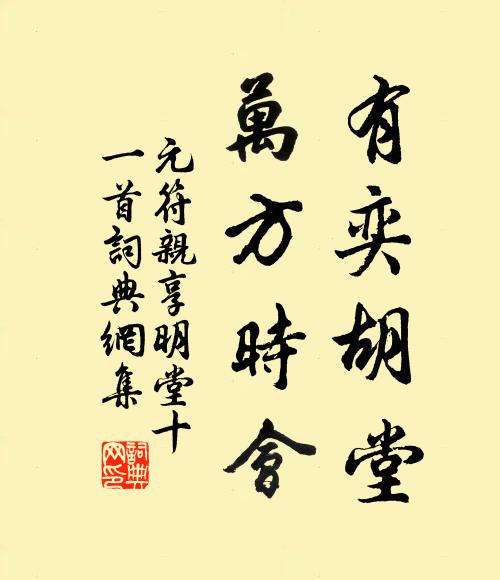 有奕胡堂
萬方時會
元符親享明堂十
一首詞典網集
詞典网印